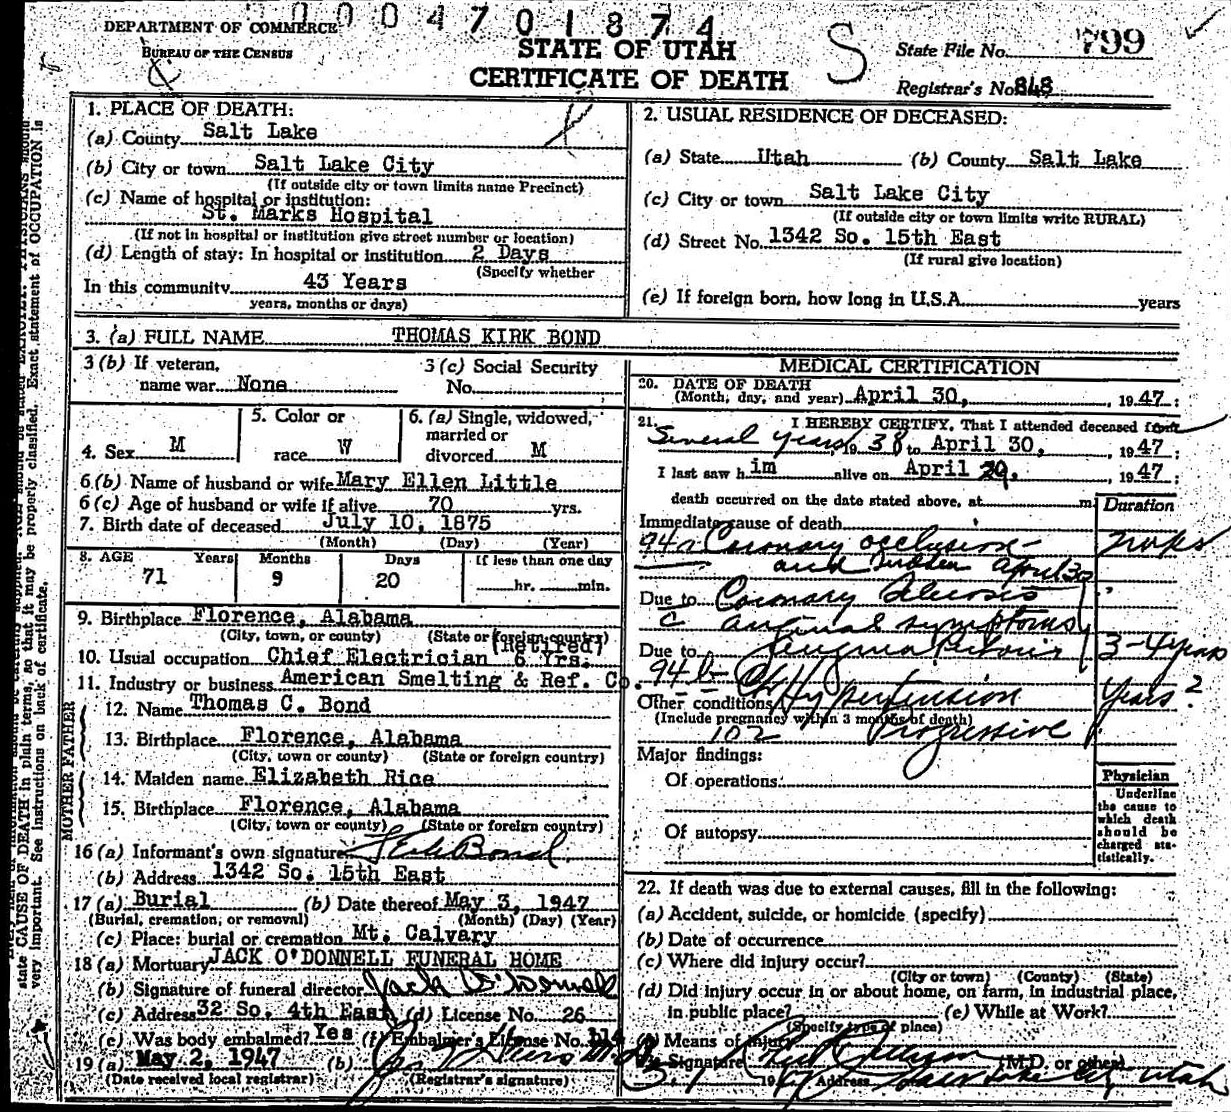 0004701874
DEPARTMENT OF COMMERCE
BUREAU OF THE CENSUS
STATE OF UTAH
CERTIFICATE OF DEATH
S
State File No. 799
Registrar's No. 848
1. PLACE OF DEATH:
(a) County Salt Lake
(b) City or town Salt Lake City
(If outside city or town limits name Precinct)
(c) Name of hospital or institution:
St. Marks Hospital
(If not in hospital or institution give street number or location)
(d) Length of stay: In hospital or institution 2 Days
(Specify whether
In this community 43 Years
years, months or days)
2. USUAL RESIDENCE OF DECEASED:
(a) State Utah (b) County Salt Lake
(c) City or town Salt Lake City
(If outside city or town limits write RURAL)
(d) Street No. 1342 So. 15th East
(If rural give location)
(e) If foreign born, how long in U.S.A. years
3. (a) FULL NAME THOMAS KIRK BOND
3 (b) If veteran,
name war None
3 (c) Social Security
No.
4. Sex M
5. Color or
race W
6. (a) Single, widowed,
married or
divorced M
6 (b) Name of husband or wife Mary Ellen Little
6 (c) Age of husband or wife if alive 70 yrs.
7. Birth date of deceased July 10, 1875
(Month) (Day) (Year)
8. AGE Years Months Days If less than one day
71 9 20 hr. min.
9. Birthplace Florence, Alabama
(City, town, or county) (State or foreign country)
(Retired)
10. Usual occupation Chief Electrician 6 Yrs.
11. Industry or business American Smelting & Ref. Co.
FATHER
12. Name Thomas C. Bond
13. Birthplace Florence, Alabama
(City, town or county) (State or foreign country)
MOTHER
14. Maiden name Elizabeth Rice
15. Birthplace Florence, Alabama
(City, town or county) (State or foreign country)
16 (a) Informant's own signature Kirk Bond
(b) Address 1342 So. 15th East
17 (a) Burial (b) Date thereof May 3, 1947
(Burial, cremation, or removal) (Month) (Day) (Year)
(c) Place: burial or cremation Mt. Calvary
18 (a) Mortuary JACK O'DONNELL FUNERAL HOME
(b) Signature of funeral director Jack O'Donnell
(c) Address 32 So. 4th East (d) License No. 26
(e) Was body embalmed? Yes (f) Embalmer's License No.
19 (a) May 2, 1947 (b)
(Date received local registrar) (Registrar's signature)
MEDICAL CERTIFICATION
20. DATE OF DEATH
(Month, day, and year) April 30, 1947
21. I HEREBY CERTIFY, That I attended deceased from
Several years, 1938 to April 30, 1947
I last saw him alive on April 29, 1947
death occurred on the date stated above, at m.
Duration
Immediate cause of death
94a Coronary occlusion
and sudden April 30
Due to Coronary Sclerosis
c anginal symptoms
Due to Angina Pectoris 3-4 years
94b Hypertension Years?
Other conditions
(Include pregnancy within 3 months of death)
102 Progressive
Major findings:
Of operations
Of autopsy
Physician
Underline
the cause to
which death
should be
charged sta-
tistically.
22. If death was due to external causes, fill in the following:
(a) Accident, suicide, or homicide (specify)
(b) Date of occurrence
(c) Where did injury occur?
(City or town) (County) (State)
(d) Did injury occur in or about home, on farm, in industrial place,
in public place? (e) While at Work?
(Specify type of place)
Means of injury
Signature (M.D. or other)
1947 Address Salt Lake City Utah
state CAUSE OF DEATH in plain terms, so that it may be properly classified. Exact statement of OCCUPATION is
very important. See instructions on back of certificate.